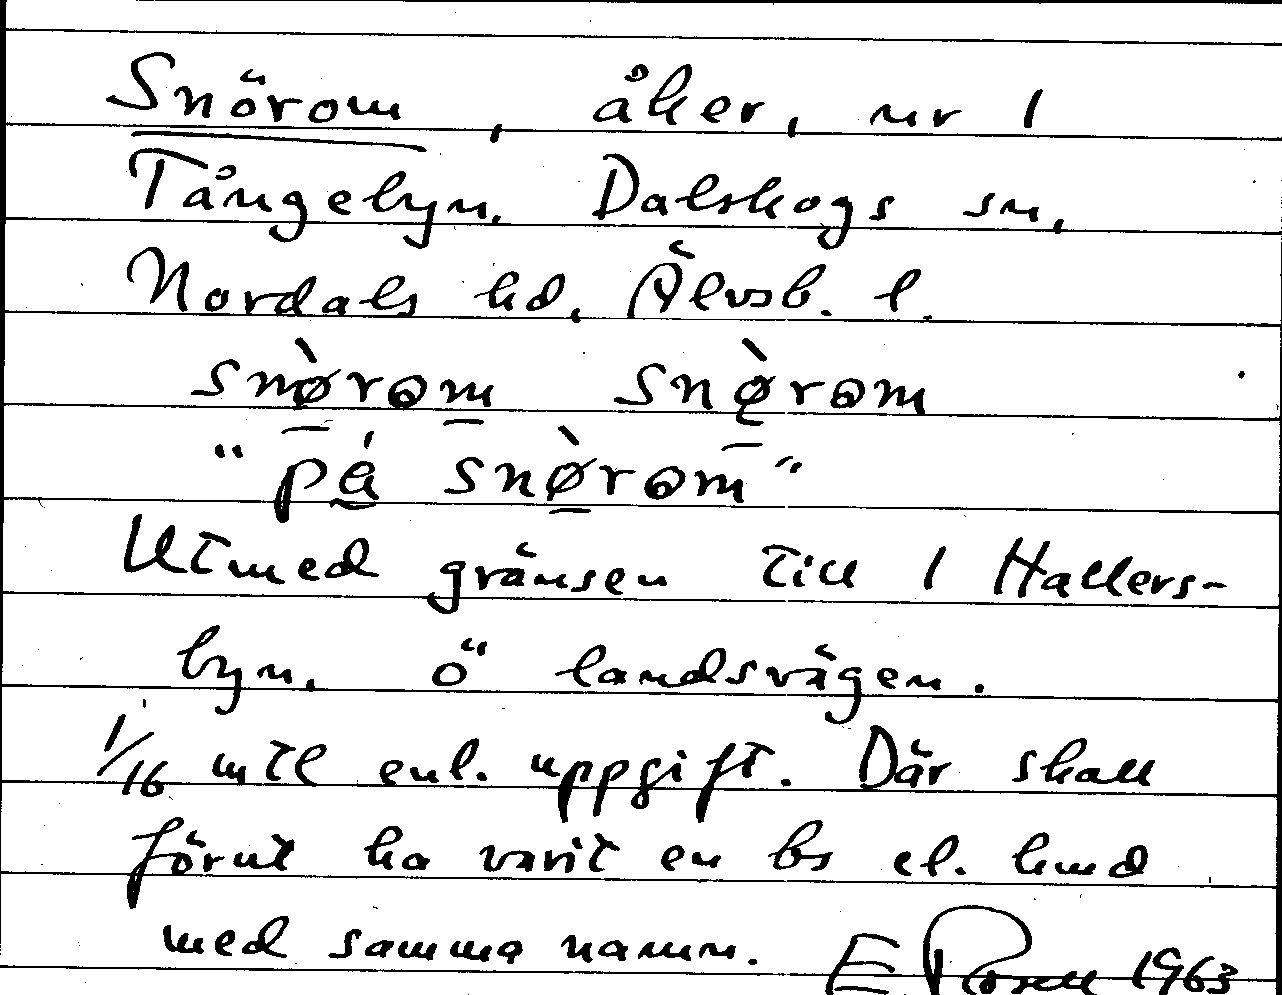 Snörom, åker, nr 1
Tångelyn. Dalskogs sn,
Nordals hd, Älvsb. l.
snø̀rom snø̀rom
"på snø̀rom"
Utmed gränsen till 1 Hallers-
byn. Ö landsvägen.
1/16 mtl enl. uppgift. Där skall
förut ha varit en bs el. hmd
med samma namn. E Rosell 1963